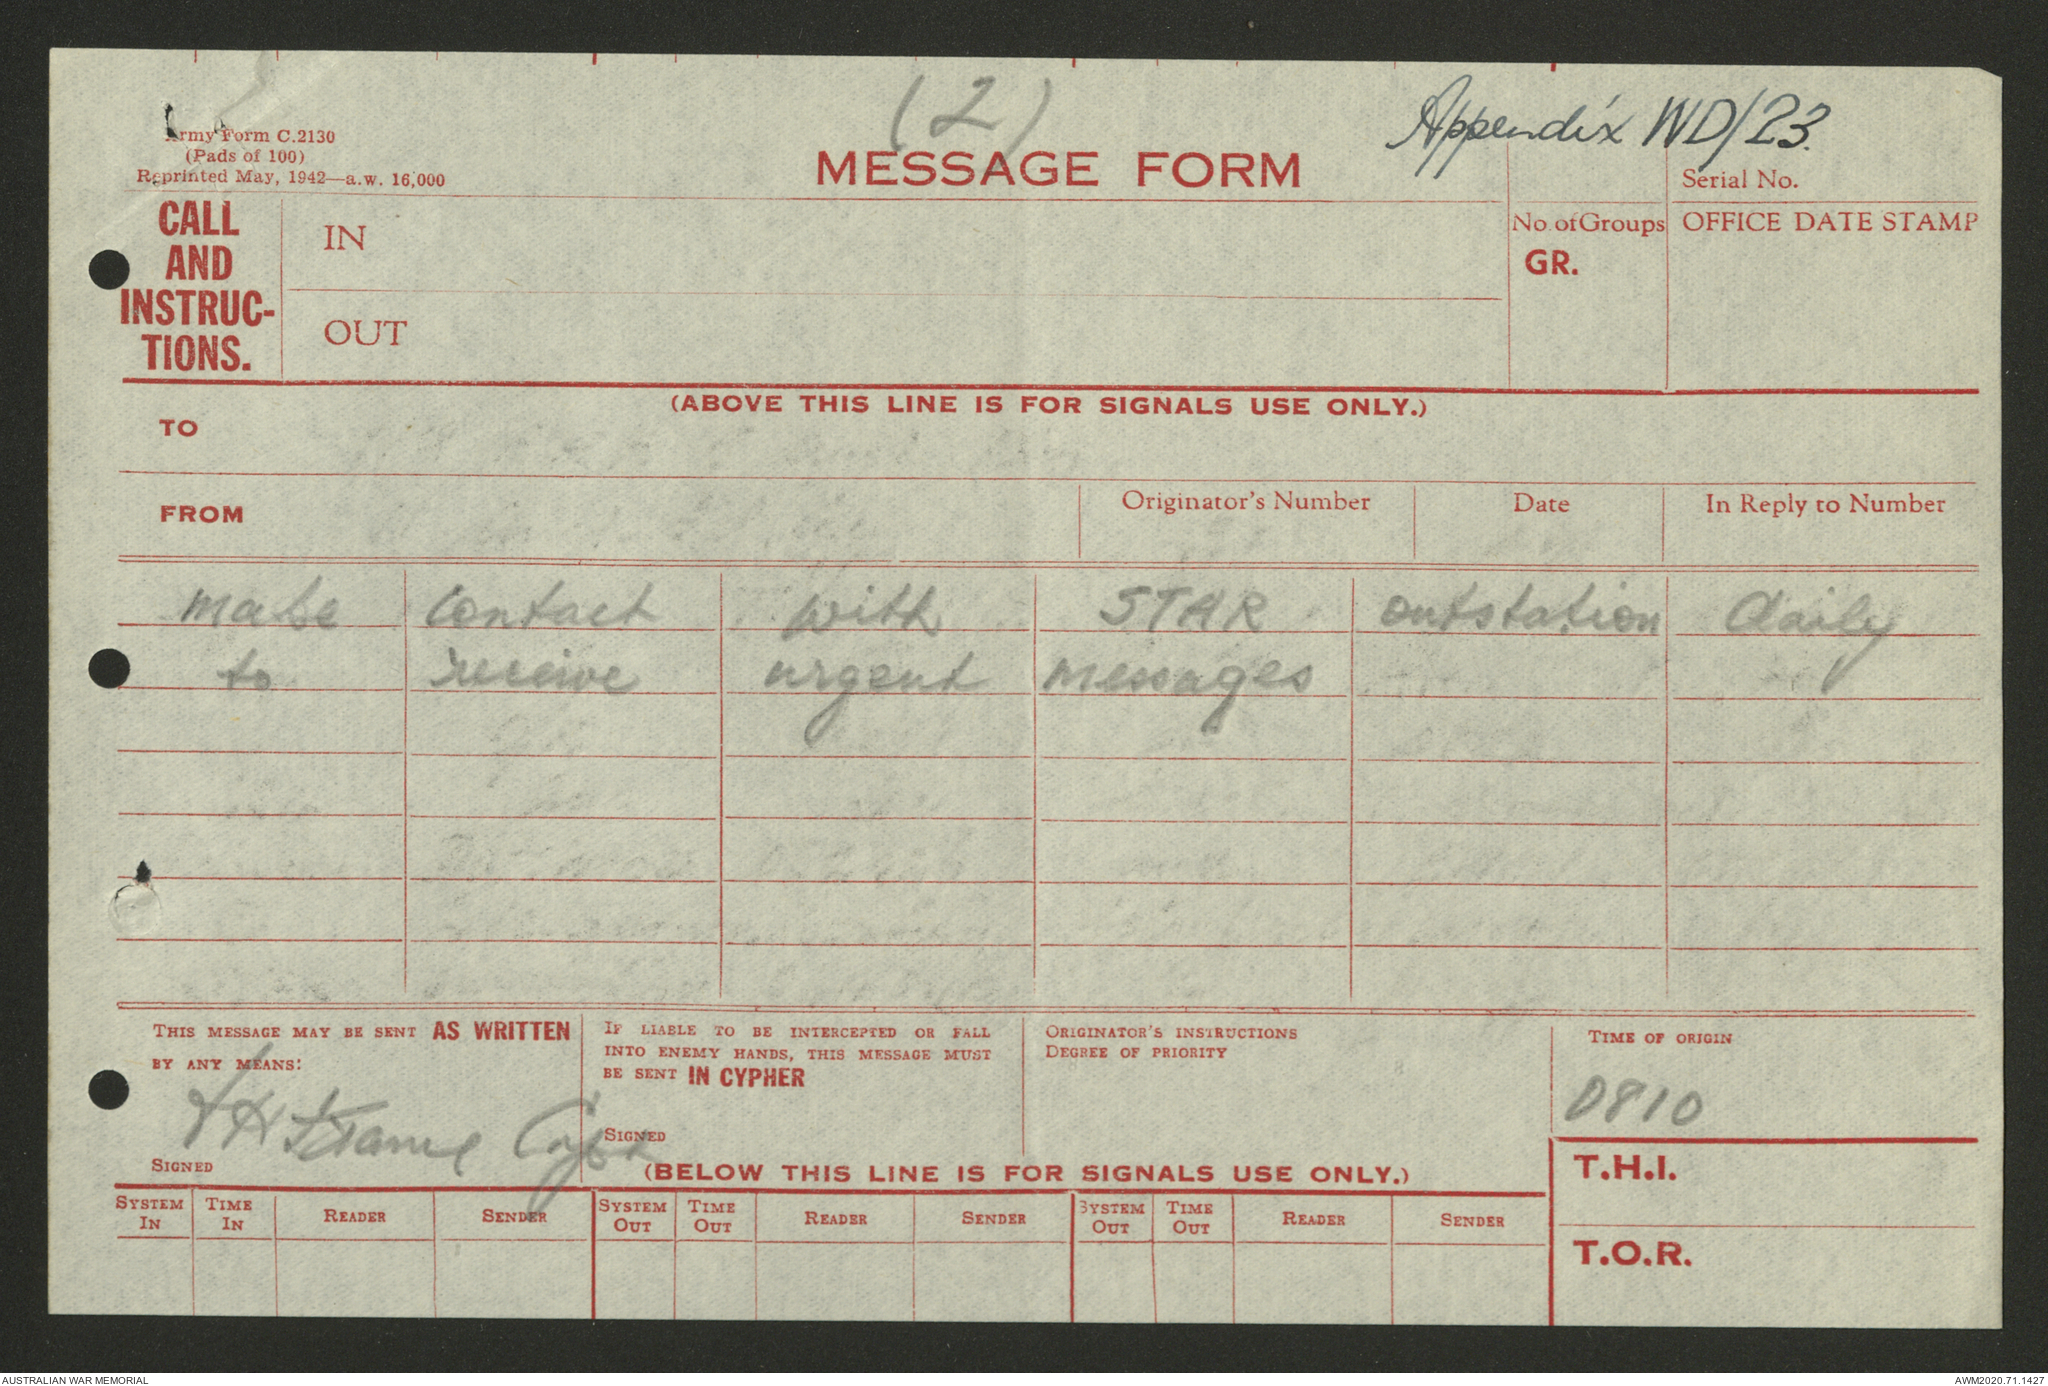 (2)
Appendix WD/23.
Army Form C.2130
(Pads of 100)
Reprinted May, 1942—a.w. 16,000
MESSAGE FORM
Serial No.
CALL
AND
INSTRUC-
TIONS.
IN
OUT
No. of Groups
GR.
OFFICE DATE STAMP
(ABOVE THIS LINE IS FOR SIGNALS USE ONLY.)
TO
FROM
Originator's Number
Date
In Reply to Number
make contact with STAR outstation daily
to receive urgent messages
THIS MESSAGE MAY BE SENT AS WRITTEN
BY ANY MEANS:
Capt
SIGNED
IF LIABLE TO BE INTERCEPTED OR FALL
INTO ENEMY HANDS, THIS MESSAGE MUST
BE SENT IN CYPHER
SIGNED
ORIGINATOR'S INSTRUCTIONS
DEGREE OF PRIORITY
TIME OF ORIGIN
0810
(BELOW THIS LINE IS FOR SIGNALS USE ONLY.)
T.H.I.
T.O.R.
SYSTEM IN
TIME IN
READER
SENDER
SYSTEM OUT
TIME OUT
READER
SENDER
SYSTEM OUT
TIME OUT
READER
SENDER
AUSTRALIAN WAR MEMORIAL
AWM2020.71.1427